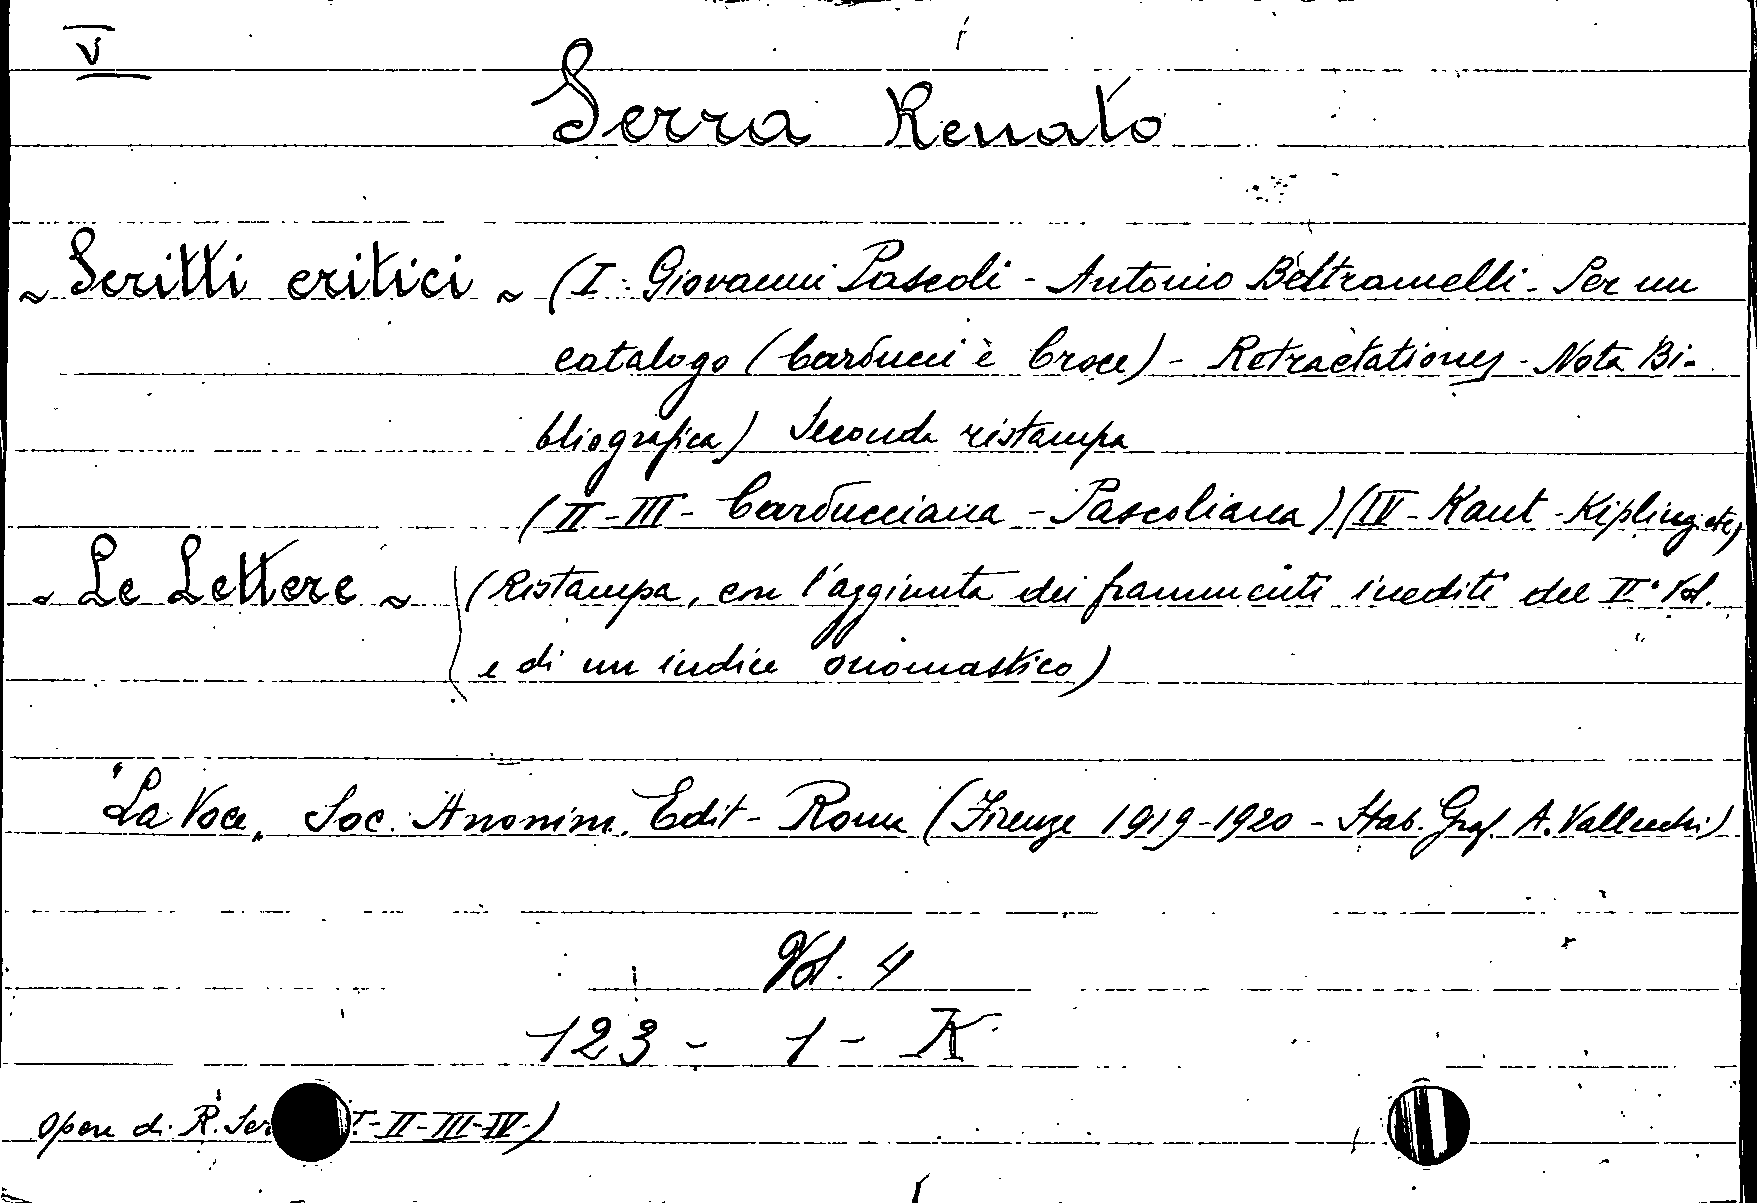 V
Serra Renato
~ Scritti critici ~ (I - Giovanni Pascoli - Antonio Beltramelli - Per un
catalogo (Carducci è Croce) - Retractationes - Nota Bi-
bliografica) Seconda ristampa
(II - III - Carducciana - Pascoliana) (IV - Kant - Kipling etc)
~ Le Lettere ~ (Ristampa, con l'aggiunta dei frammenti inediti del II° Vol.
e di un indice onomastico)
"La Voce„ Soc. Anonim. Edit - Roma (Firenze 1919-1920 - Stab. Graf. A. Vallecchi)
Vol. 4
123 - 1 - K
Opere di R. Ser I-II-III-IV-)